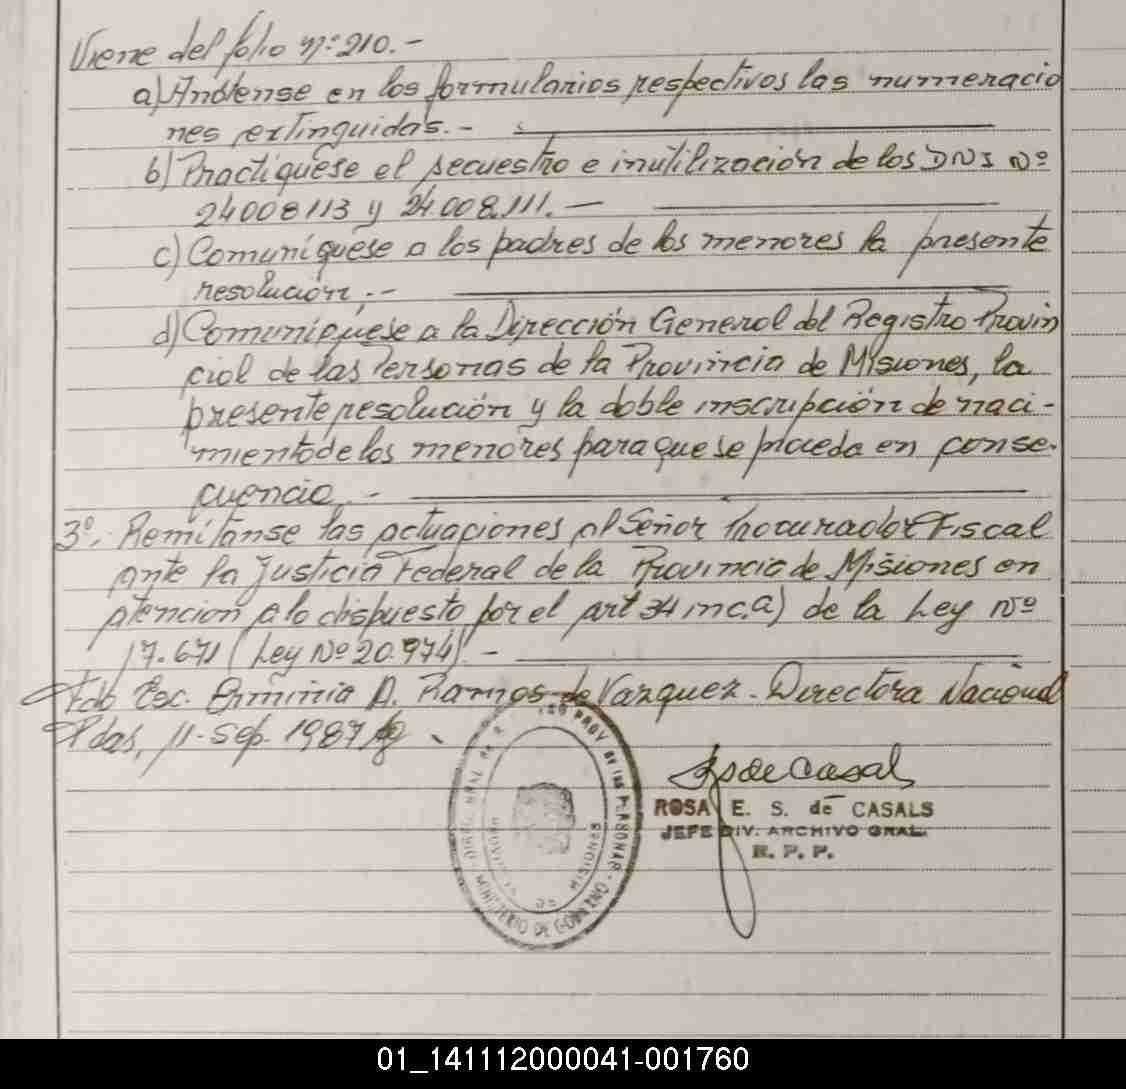 Viene del folio nº 210.-
a) Anótense en los formularios respectivos las numeracio
nes extinguidas.-
b) Practíquese el secuestro e inutilización de los DNI Nº
24008113 y 24.008.111.-
c) Comuníquese a los padres de los menores la presente
resolución.-
d) Comuníquese a la Dirección General del Registro Provin
cial de las Personas de la Provincia de Misiones, la
presente resolución y la doble inscripción de naci-
miento de los menores para que se proceda en conse-
cuencia.-
3º. Remítanse las actuaciones al Señor Procurador Fiscal
ante la Justicia Federal de la Provincia de Misiones en
atención a lo dispuesto por el art 34 inc. a) de la Ley Nº
17.671 (Ley Nº 20.974).-
Fdo Esc. Erminia A. Ramos de Vazquez. Directora Nacional
Pdas, 11-Sep. 1987
PROV de las PERSONAS - MINISTERIO DE GOBIERNO
DE MISIONES
ROSA E. S. de CASALS
JEFE DIV. ARCHIVO GRAL.
R. P. P.
01_141112000041-001760